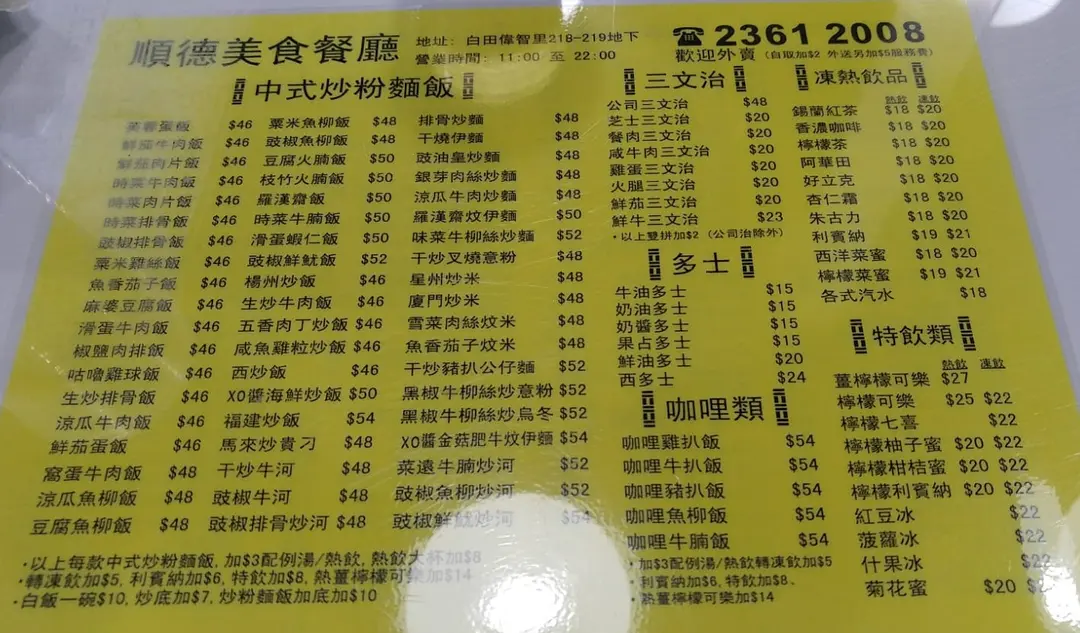 順德美食餐廳
地址: 白田偉智里218-219地下
營業時間: 11:00 至 22:00
☎2361 2008
歡迎外賣 (自取加$2 外送另加$5服務費)
中式炒粉麵飯
芙蓉蛋飯 $46
鮮菇牛肉飯 $46
鮮菇肉片飯 $46
時菜牛肉飯 $46
時菜肉片飯 $46
時菜排骨飯 $46
豉椒排骨飯 $46
粟米雞絲飯 $46
魚香茄子飯 $46
麻婆豆腐飯 $46
滑蛋牛肉飯 $46
椒鹽肉排飯 $46
咕嚕雞球飯 $46
生炒排骨飯 $46
涼瓜牛肉飯 $46
鮮茄蛋飯 $46
窩蛋牛肉飯 $48
涼瓜魚柳飯 $48
豆腐魚柳飯 $48
粟米魚柳飯 $48
豉椒魚柳飯 $48
豆腐火腩飯 $50
枝竹火腩飯 $50
羅漢齋飯 $50
時菜牛腩飯 $50
滑蛋蝦仁飯 $50
豉椒鮮魷飯 $52
楊州炒飯 $46
生炒牛肉飯 $46
五香肉丁炒飯 $46
咸魚雞粒炒飯 $46
西炒飯 $46
XO醬海鮮炒飯 $50
福建炒飯 $54
馬來炒貴刁 $48
干炒牛河 $48
豉椒牛河 $48
豉椒排骨炒河 $48
排骨炒麵 $48
干燒伊麵 $48
豉油皇炒麵 $48
銀芽肉絲炒麵 $48
涼瓜牛肉炒麵 $48
羅漢齋炆伊麵 $50
味菜牛柳絲炒麵 $52
干炒叉燒意粉 $48
星州炒米 $48
廈門炒米 $48
雪菜肉絲炆米 $48
魚香茄子炆米 $48
干炒豬扒公仔麵 $52
黑椒牛柳絲炒意粉 $52
黑椒牛柳絲炒烏冬 $52
XO醬金菇肥牛炆伊麵 $54
菜遠牛腩炒河 $52
豉椒魚柳炒河 $52
豉椒鮮魷炒河 $54
·以上每款中式炒粉麵飯, 加$3配例湯/熱飲, 熱飲大杯加$8
·轉凍飲加$5, 利賓納加$6, 特飲加$8, 熱薑檸檬可樂加$14
·白飯一碗$10, 炒底加$7, 炒粉麵飯加底加$10
三文治
公司三文治 $48
芝士三文治 $20
餐肉三文治 $20
咸牛肉三文治 $20
雞蛋三文治 $20
火腿三文治 $20
鮮茄三文治 $20
鮮牛三文治 $23
·以上雙拼加$2 (公司治除外)
多士
牛油多士 $15
奶油多士 $15
奶醬多士 $15
果占多士 $15
鮮油多士 $20
西多士 $24
咖哩類
咖哩雞扒飯 $54
咖哩牛扒飯 $54
咖哩豬扒飯 $54
咖哩魚柳飯 $54
咖哩牛腩飯 $54
·加$3配例湯/熱飲, 熱飲轉凍飲加$5
·利賓納加$6, 特飲加$8、
·熱薑檸檬可樂加$14
凍熱飲品
熱飲 凍飲
錫蘭紅茶 $18 $20
香濃咖啡 $18 $20
檸檬茶 $18 $20
阿華田 $18 $20
好立克 $18 $20
杏仁霜 $18 $20
朱古力 $18 $20
利賓納 $19 $21
西洋菜蜜 $18 $20
檸檬菜蜜 $19 $21
各式汽水 $18
特飲類
熱飲 凍飲
薑檸檬可樂 $27
檸檬可樂 $25 $22
檸檬七喜 $22
檸檬柚子蜜 $20 $22
檸檬柑桔蜜 $20 $22
檸檬利賓納 $20 $22
紅豆冰 $22
菠蘿冰 $22
什果冰 $22
菊花蜜 $20